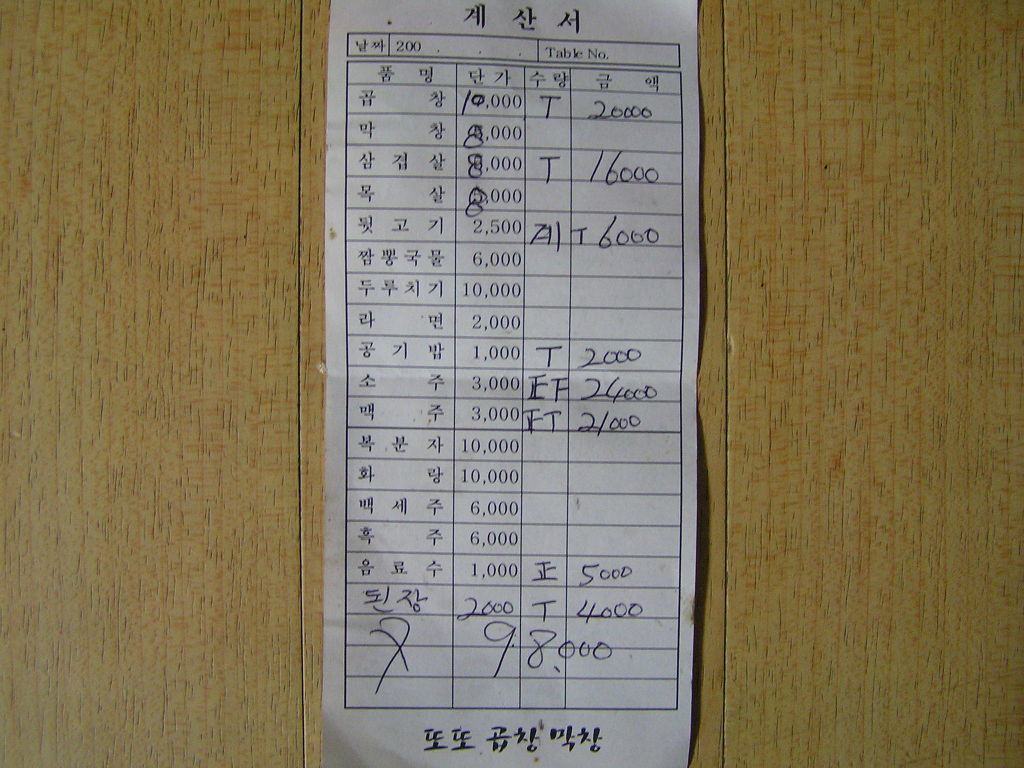 계산서
날짜 200 . . . Table No.
품명 단가 수량 금액
곱창 10,000 T 20000
막창 8,000
삼겹살 8,000 T 16000
목살 8,000
뒷고기 2,500 계 T 6000
짬뽕국물 6,000
두루치기 10,000
라면 2,000
공기밥 1,000 T 2000
소주 3,000 正F 24000
맥주 3,000 正T 21000
복분자 10,000
화랑 10,000
백세주 6,000
흑주 6,000
음료수 1,000 正 5000
된장 2000 T 4000
98.000
또또 곱창 막창